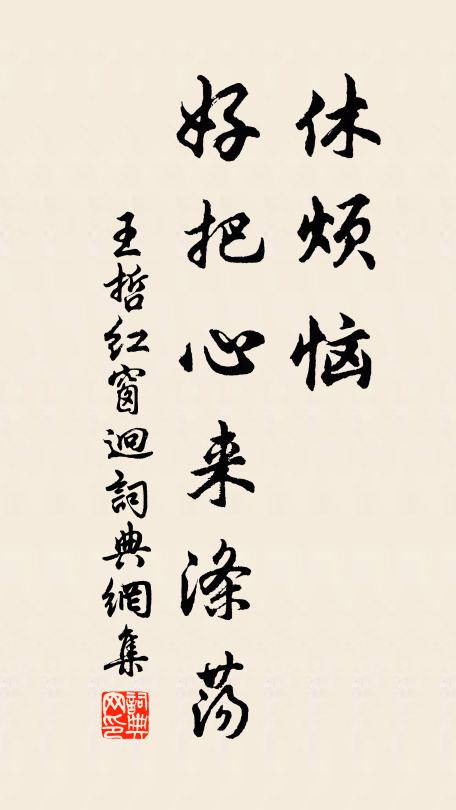 休烦恼
好把心来涤荡
王哲红窗迥詞典網集
詞典网印